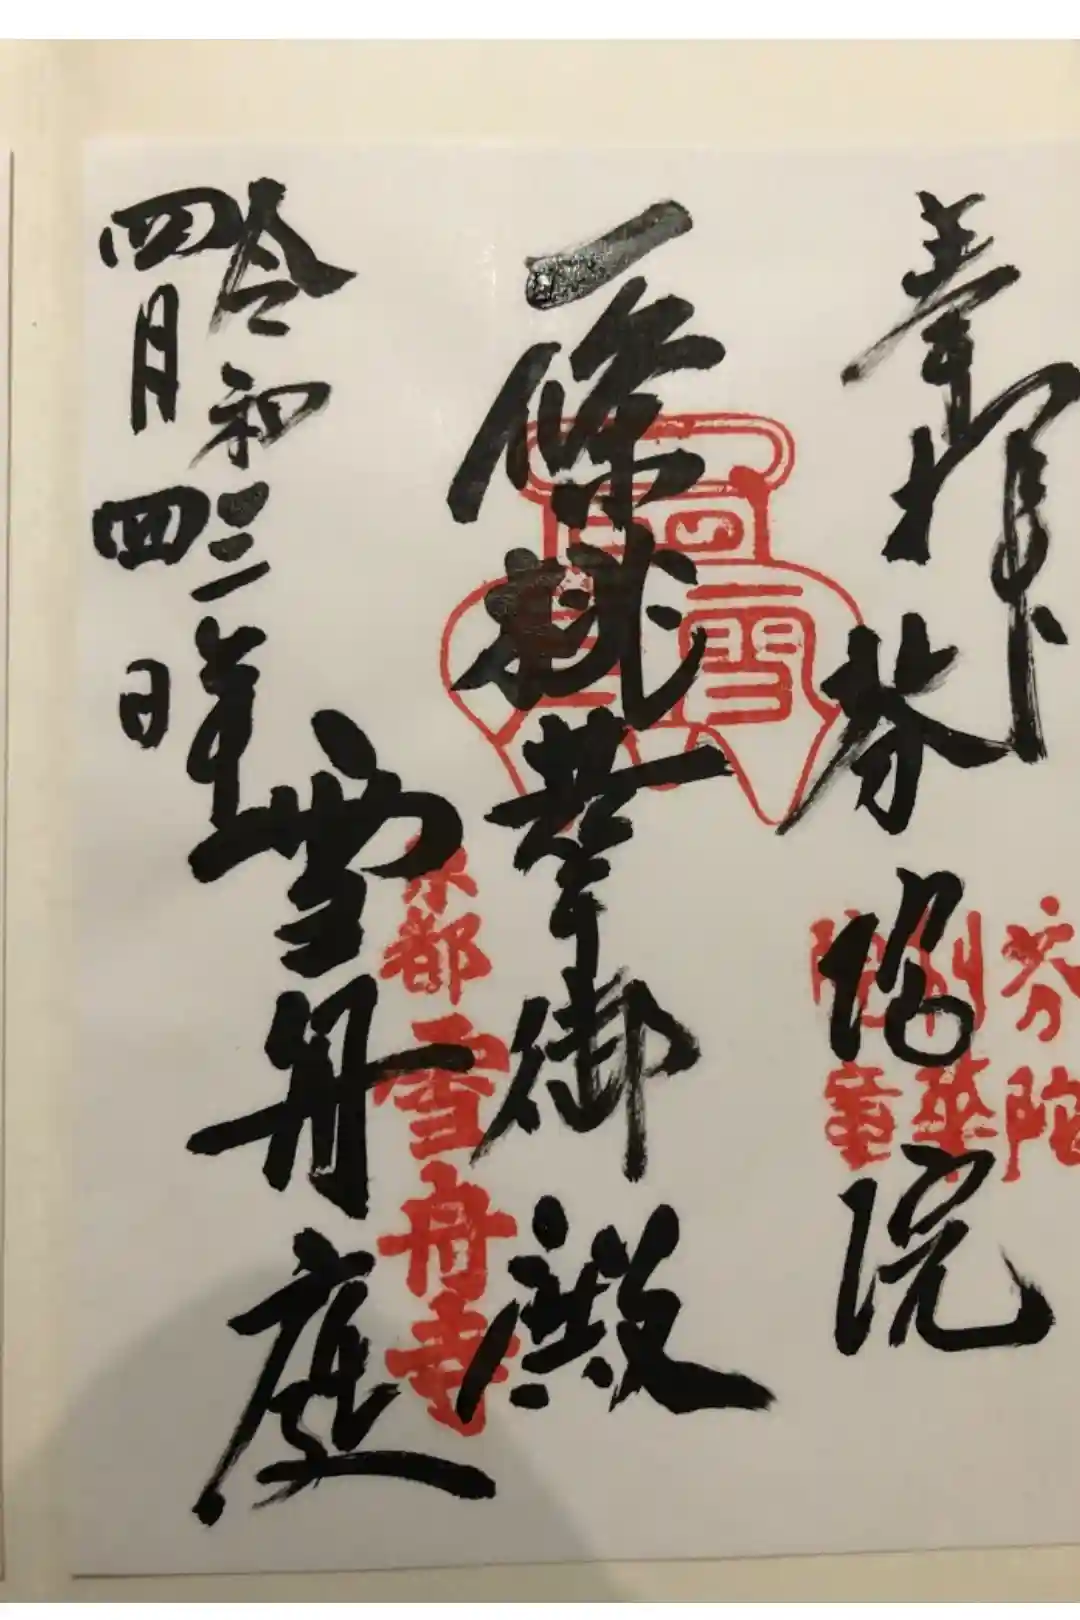 奉拝
芬陀院
芬陀
利華
院章
一條桃華御殿
京都 雪舟寺
雪舟庭
令和三年
四月四日